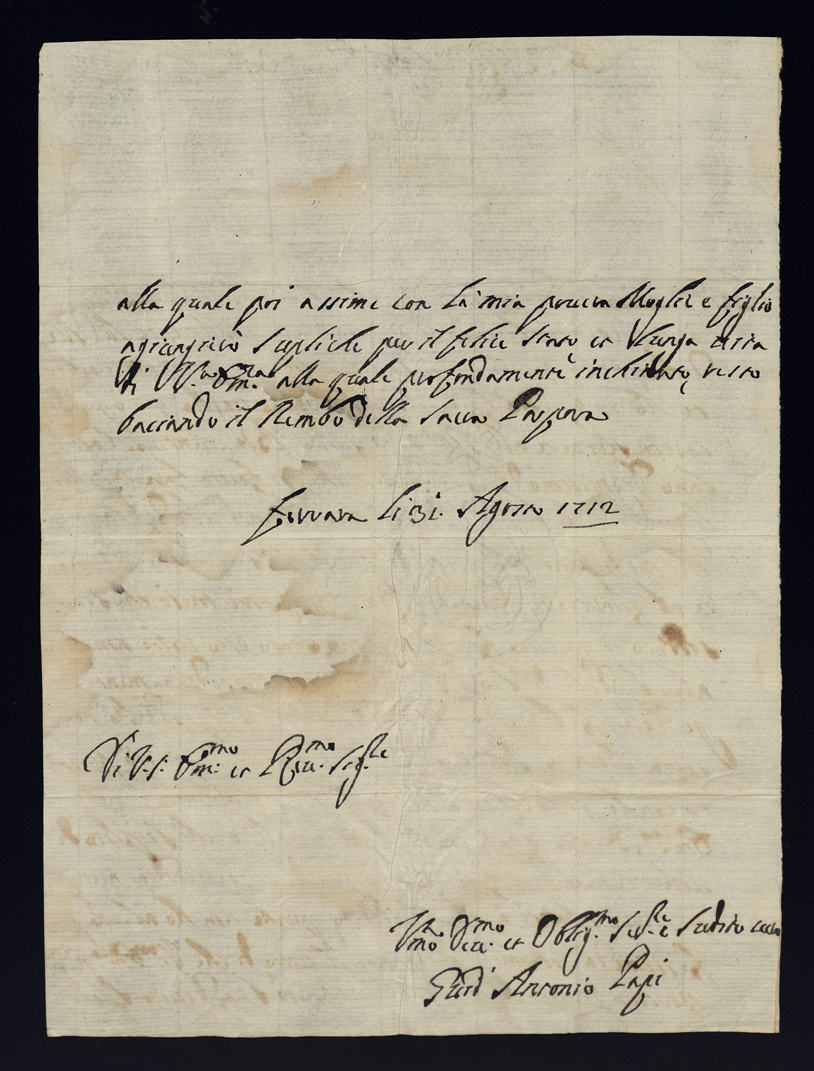 alla quale poi assieme con la mia povera Moglie e figlio
agiungierò Supliche per il felice Stato et lunga vita
di V.ra Em.za alla quale profondamente inchinato, resto
bacciando il Lembo della Sacra Porpora
Ferrara li 31. Agosto 1712
Di V. S. Em.mo et Rev.mo
H.mo Dev.mo et Oblig.mo Ser.re e Sudito
Antonio Papi